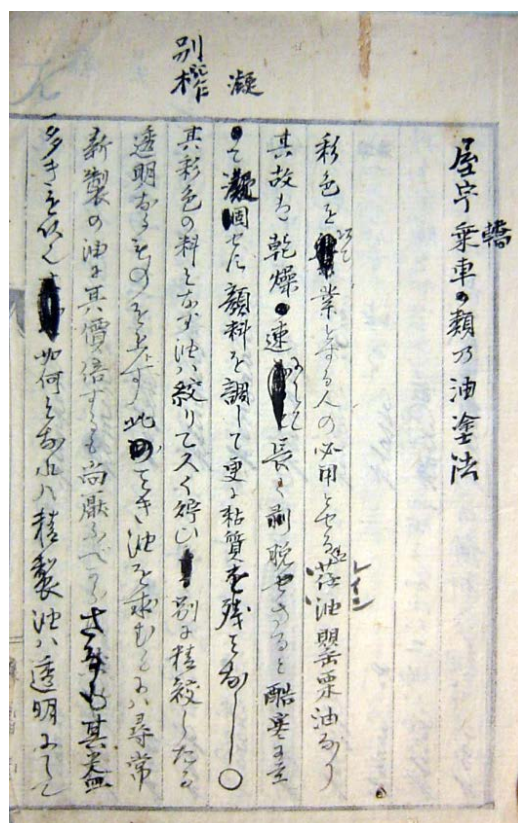 凝
別ニ
屋宇轎乗車の類乃油塗法
彩色を業とする人の必用とせる荏油罌粟油なり
レイン
其故は乾燥速にして長く剥脱せさると酷寒に至
て凝固せす顔料を調して更に粘質を残さゝる
其彩色の料となす油ハ絞りて久く貯ひ別に精絞したる
透明なるものを上とす此ことき油を求むとハ尋常
新製の油に其價倍するも尚厭ふへからさるも其益
多きを以て如何となれハ精製油ハ透明にして